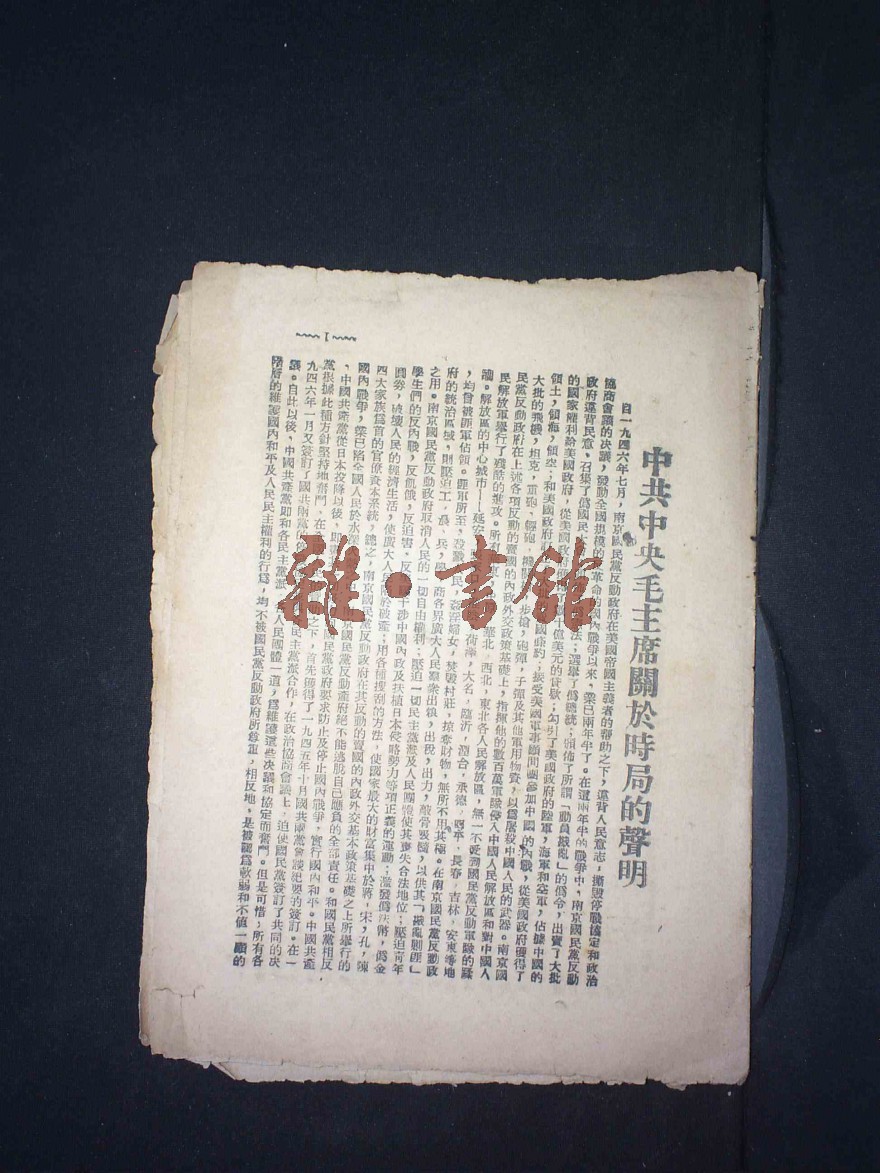 中共中央毛主席關於時局的聲明
自一九四六年七月,南京國民黨反動政府在美國帝國主義者的帮助之下,違背人民意志,撕毀停戰協定和政治
協商會議的决議,發動全國規模的反革命的國內戰爭以來,業已兩年半了。在這兩年半的戰爭中,南京國民黨反動
政府違背民意,召集了僞國民
法;選舉了僞總統;頒佈了所謂「動員戡亂」的僞令,出賣了大批
的國家權利給美國政府,從美國政府
億美元的
;勾引了美國政府的陸軍,海軍和空軍,佔據中國的
領土,領海,領空;和美國政府
國條約;接受美國軍事顧問團參加中國的內戰,從美國政府獲得了
大批的飛機,坦克,重砲,輕砲,機關
步槍,砲彈,子彈及其他軍用物資,以爲屠殺中國人民的武器。南京國
民黨反動政府在上述各項反動的賣國的內政外交政策基礎上,指揮他的數百萬軍隊侵入中國人民解放區和對中國人
民解放軍舉行了殘酷的進攻。所
華北,西北,東北各人民解放區,無一不受到國民黨反動軍隊的蹂
躪。解放區的中心城市——延安
荷澤,大名,臨沂,烟台,承德,四平,長春,吉林,安東等地
,均曾被匪軍佔領。匪軍所至,殺戮人民,姦淫婦女,焚燬村莊,掠奪財物,無所不用其極。在南京國民黨反動政
府的統治區域,則壓迫工,農,兵,學,商各界廣大人民羣衆出糧,出稅,出力,敲骨吸髓,以供其「戡亂剿匪」
之用。南京國民黨反動政府取消人民的一切自由權利;壓迫一切民主黨派及人民團體使其喪失合法地位;壓迫青年
學生們的反內戰,反飢餓,反迫害,反
干涉中國內政及扶植日本侵略勢力等項正義的運動;濫發僞法幣,僞金
圓券,破壞人民的經濟生活,使廣大人民陷於破產;用各種搜刮的方法,使國家最大的財富集中於蔣,宋,孔,陳
四大家族爲首的官僚資本系統,總之,南京國民黨反動政府在其反動的賣國的內政外交基本政策基礎之上所舉行的
國內戰爭,業已將全國人民於水深
國民黨反動政府絕不能逃脫自己應負的全部責任。和國民黨相反
、中國共產黨從日本投降以後,即
國民黨政府要求防止及停止國內戰爭,實行國內和平。中國共產
黨根據此種方針堅持地奮鬥,在
之下,首先獲得了一九四五年十月國共兩黨會談紀要的簽訂。在一
九四六年一月又簽訂了國共兩黨停
民主黨派合作,在政治協商會議上,迫使國民黨簽訂了共同的决
議。自此以後,中國共產黨即和各民主黨派
人民團體一道,爲維護這些决議和協定而奮鬥。但是可惜,所有各
階層的維護國內和平及人民民主權利的行爲,均不被國民黨反動政府所尊重,相反地,是被認爲軟弱和不值一顧的
1
雜·書館